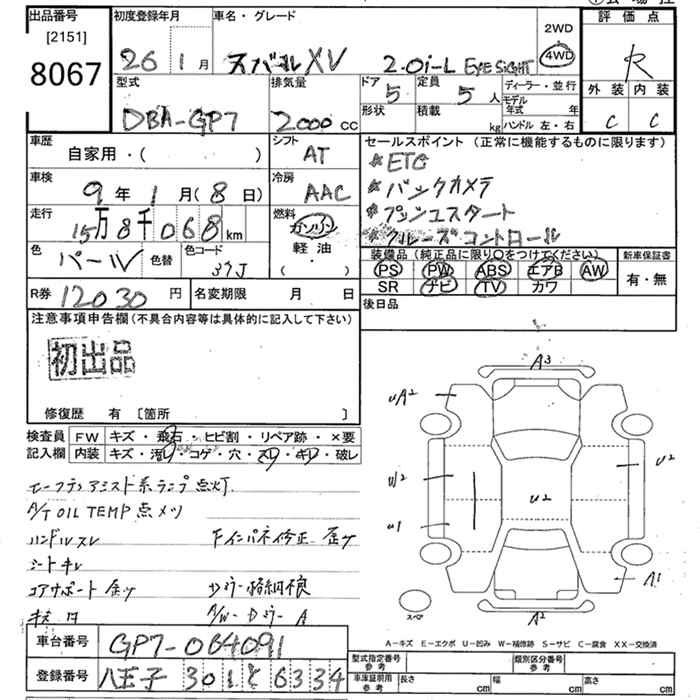 出品番号 初度登録年月 車名・グレード 評価点
[2151]
8067
26 1月 スバルXV 2.0i-L EYESIGHT 2WD 4WD R
型式 排気量 ドア 定員 ディーラー・並行 外装 内装
DBA-GP7 2000cc 5 5人 モデル年式 年 C C
形状 積載 kg ハンドル 左・右
車歴 シフト セールスポイント(正常に機能するものに限ります)
自家用・( ) AT *ETC
車検 冷房 *バックカメラ
9年1月(8日) AAC *プッシュスタート
走行 燃料 *クルーズコントロール
15万8千068km ガソリン
色 色替 色コード 軽油・ 装備品(純正品に限り○をつけてください) 新車保証書
パール 37J ( ) PS PW ABS エアB AW 有・無
SR ナビ TV カワ
R券 12030円 名変期限 月 日 後日品
注意事項申告欄(不具合内容等は具体的に記入して下さい)
初出品
修復歴 有 [箇所 ]
検査員 FW キズ・飛石・ヒビ割・リペア跡・×要
記入欄 内装 キズ・汚レ・コゲ・穴・スリ・キレ・破レ
A3
uA2
u2
u2
u2
u1
A1
A2
スペア
A/T OIL TEMP 点メツ
ハンドルスレ
シートキレ
コアサポート
A/W-Dミラー A
A-キズ E-エクボ U-凹み W-補修跡 S-サビ C-腐食 XX-交換済
車台番号 GP7-064091
登録番号 八王子 301 と 6334
型式指定番号 参考 類別区分番号 参考
車庫証明用 参考 長さ cm 幅 cm 高さ cm